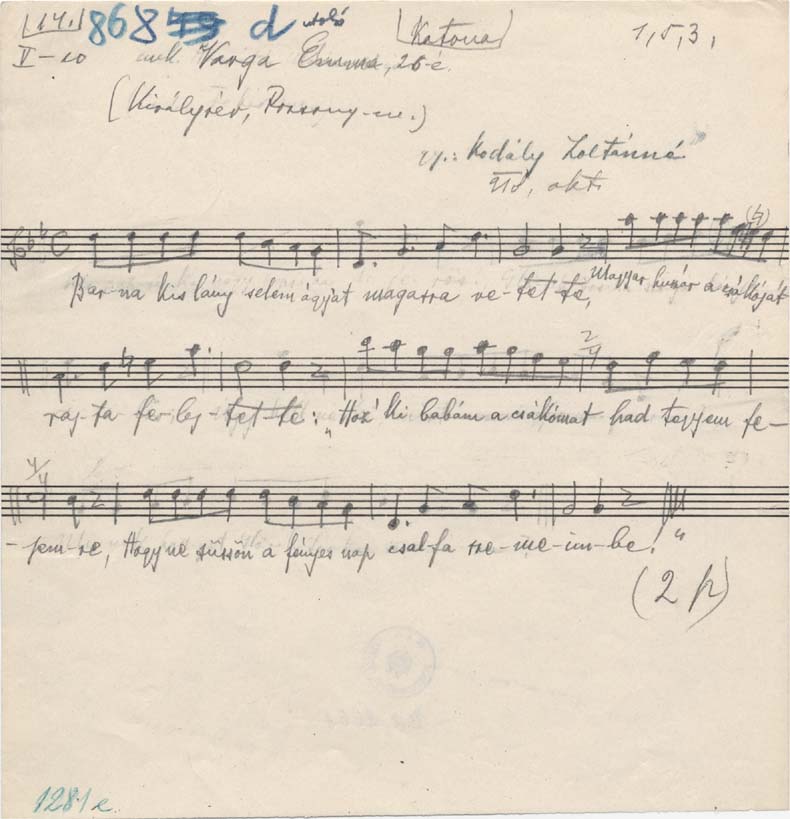 [14.] 868 d utolsó [Katona] 1, 5, 3,
V–10 énekl. Varga Emma, 26 é.
(Királyrév, Pozsony-m.)
gy.: Kodály Zoltánné
918, okt.
Bar-na kis lány selem ágyját magasra ve-tet-te, Magyar huszár a csákóját
raj-ta fe-lej-tet-te: „Hoz' ki babám a csákómat had tegyem fe-
-jem-re, Hogy ne süssön a fényes nap csal-fa sze-me-im-be!"
(2 p)
1281 e